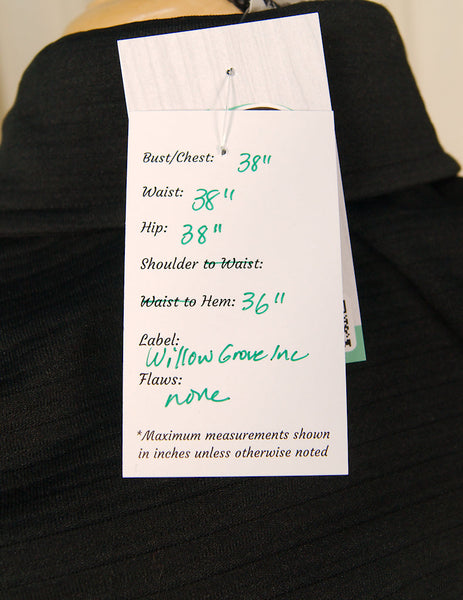 Bust/Chest: 38"
Waist: 38"
Hip: 38"
Shoulder to Waist:
Waist to Hem: 36"
Label:
Willow Grove Inc
Flaws:
none
*Maximum measurements shown
in inches unless otherwise noted